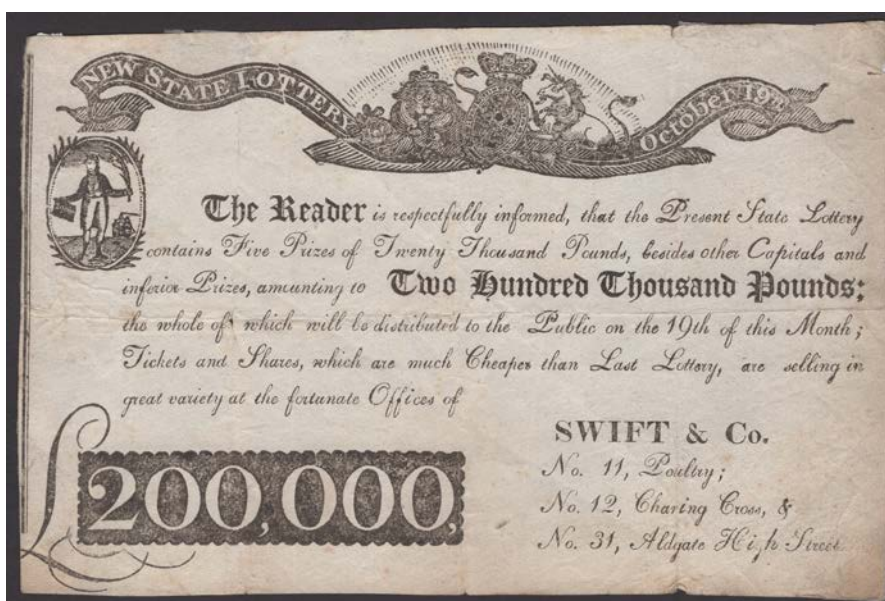 NEW STATE LOTTERY October 19th
The Reader is respectfully informed, that the Present State Lottery
contains Five Prizes of Twenty Thousand Pounds, besides other Capitals and
inferior Prizes, amounting to Two Hundred Thousand Pounds;
the whole of which will be distributed to the Public on the 19th of this Month;
Tickets and Shares, which are much Cheaper than Last Lottery, are selling in
great variety at the fortunate Offices of
SWIFT & Co.
No. 11, Poultry;
No. 12, Charing Cross, &
No. 31, Aldgate High Street.
£200,000,